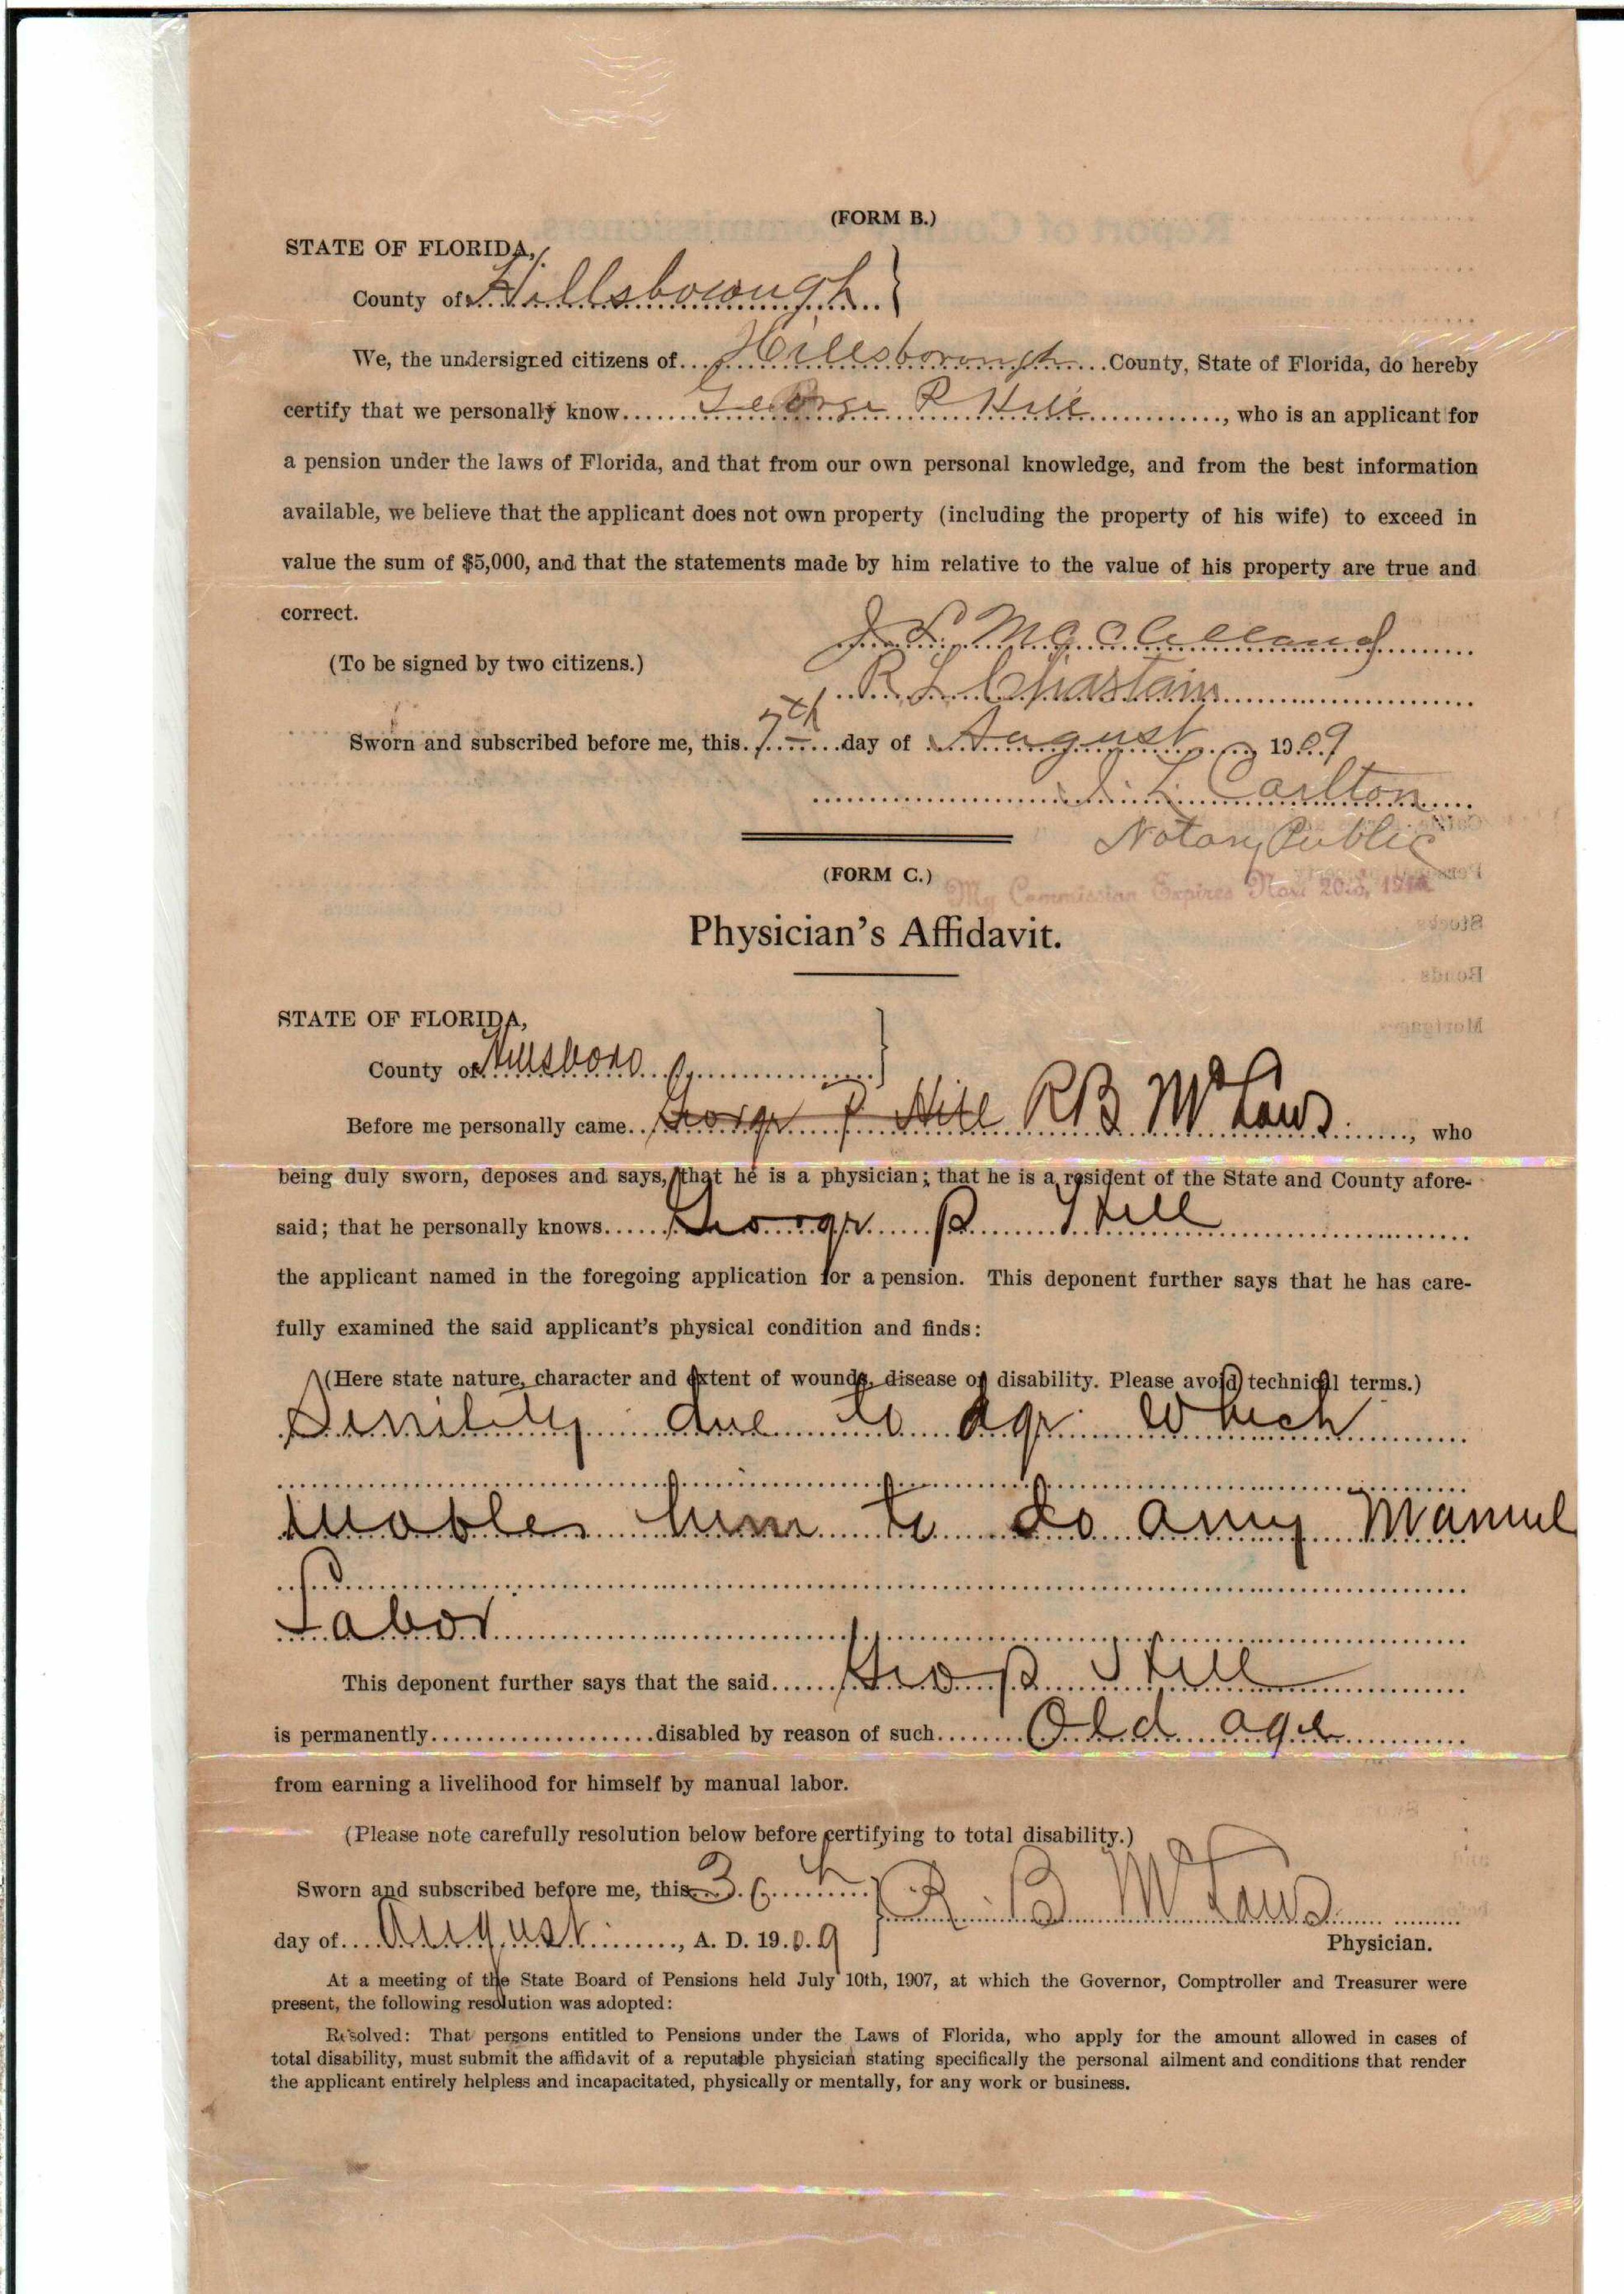 (FORM B.)
STATE OF FLORIDA,
County of Hillsborough
We, the undersigned citizens of Hillsborough County, State of Florida, do hereby
certify that we personally know George P Hill, who is an applicant for
a pension under the laws of Florida, and that from our own personal knowledge, and from the best information
available, we believe that the applicant does not own property (including the property of his wife) to exceed in
value the sum of $5,000, and that the statements made by him relative to the value of his property are true and
correct.
J. L. McClelland
(To be signed by two citizens.)
R L Chastain
Sworn and subscribed before me, this 7th day of August 1909
L. Carlton
Notary Public
(FORM C.)
My Commission Expires Nov. 20th, 191
Physician's Affidavit.
STATE OF FLORIDA,
County of Hillsboro
Before me personally came George P Hill R B McLaws, who
being duly sworn, deposes and says, that he is a physician; that he is a resident of the State and County afore-
said; that he personally knows George P Hill
the applicant named in the foregoing application for a pension. This deponent further says that he has care-
fully examined the said applicant's physical condition and finds:
(Here state nature, character and extent of wounds, disease or disability. Please avoid technical terms.)
Senility due to age which
him to do any Manuel
Labor
This deponent further says that the said Geo P Hill
is permanently disabled by reason of such Old age
from earning a livelihood for himself by manual labor.
(Please note carefully resolution below before certifying to total disability.)
Sworn and subscribed before me, this R. B McLaws
day of August, A. D. 1909
Physician.
At a meeting of the State Board of Pensions held July 10th, 1907, at which the Governor, Comptroller and Treasurer were
present, the following resolution was adopted:
Resolved: That persons entitled to Pensions under the Laws of Florida, who apply for the amount allowed in cases of
total disability, must submit the affidavit of a reputable physician stating specifically the personal ailment and conditions that render
the applicant entirely helpless and incapacitated, physically or mentally, for any work or business.